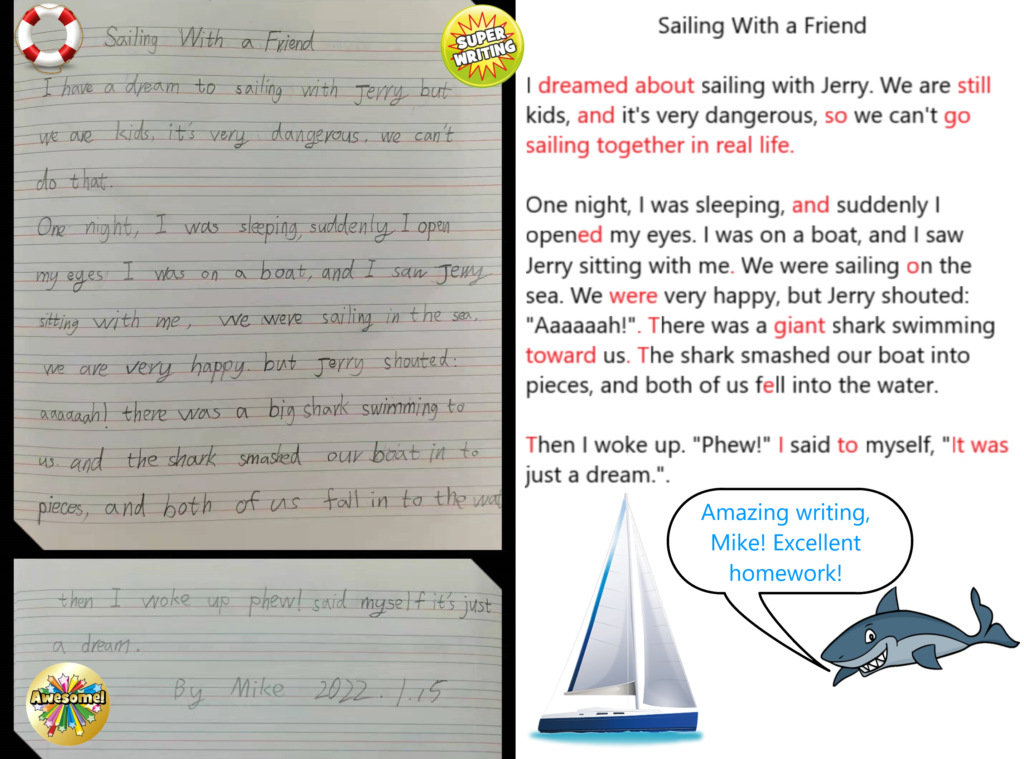 Sailing With a Friend
I have a dream to sailing with Jerry but
we are kids, it's very dangerous, we can't
do that.
One night, I was sleeping, suddenly I open
my eyes I was on a boat, and I saw Jerry
sitting with me, we were sailing in the sea.
we are very happy. but Jerry shouted:
aaaaaah! there was a big shark swimming to
us. and the shark smashed our boat in to
pieces, and both of us fall in to the wat
then I woke up phew! said myself it's just
a dream.
By Mike 2022.1.15
SUPER
WRITING
Awesome!
Sailing With a Friend
I dreamed about sailing with Jerry. We are still
kids, and it's very dangerous, so we can't go
sailing together in real life.
One night, I was sleeping, and suddenly I
opened my eyes. I was on a boat, and I saw
Jerry sitting with me. We were sailing on the
sea. We were very happy, but Jerry shouted:
"Aaaaaah!". There was a giant shark swimming
toward us. The shark smashed our boat into
pieces, and both of us fell into the water.
Then I woke up. "Phew!" I said to myself, "It was
just a dream.".
Amazing writing,
Mike! Excellent
homework!